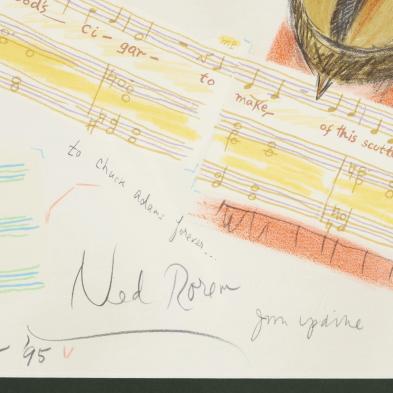 ci - gar -
to
me
make
of this
to chuck adams forever...
Ned Rorem
John Updike
- '95